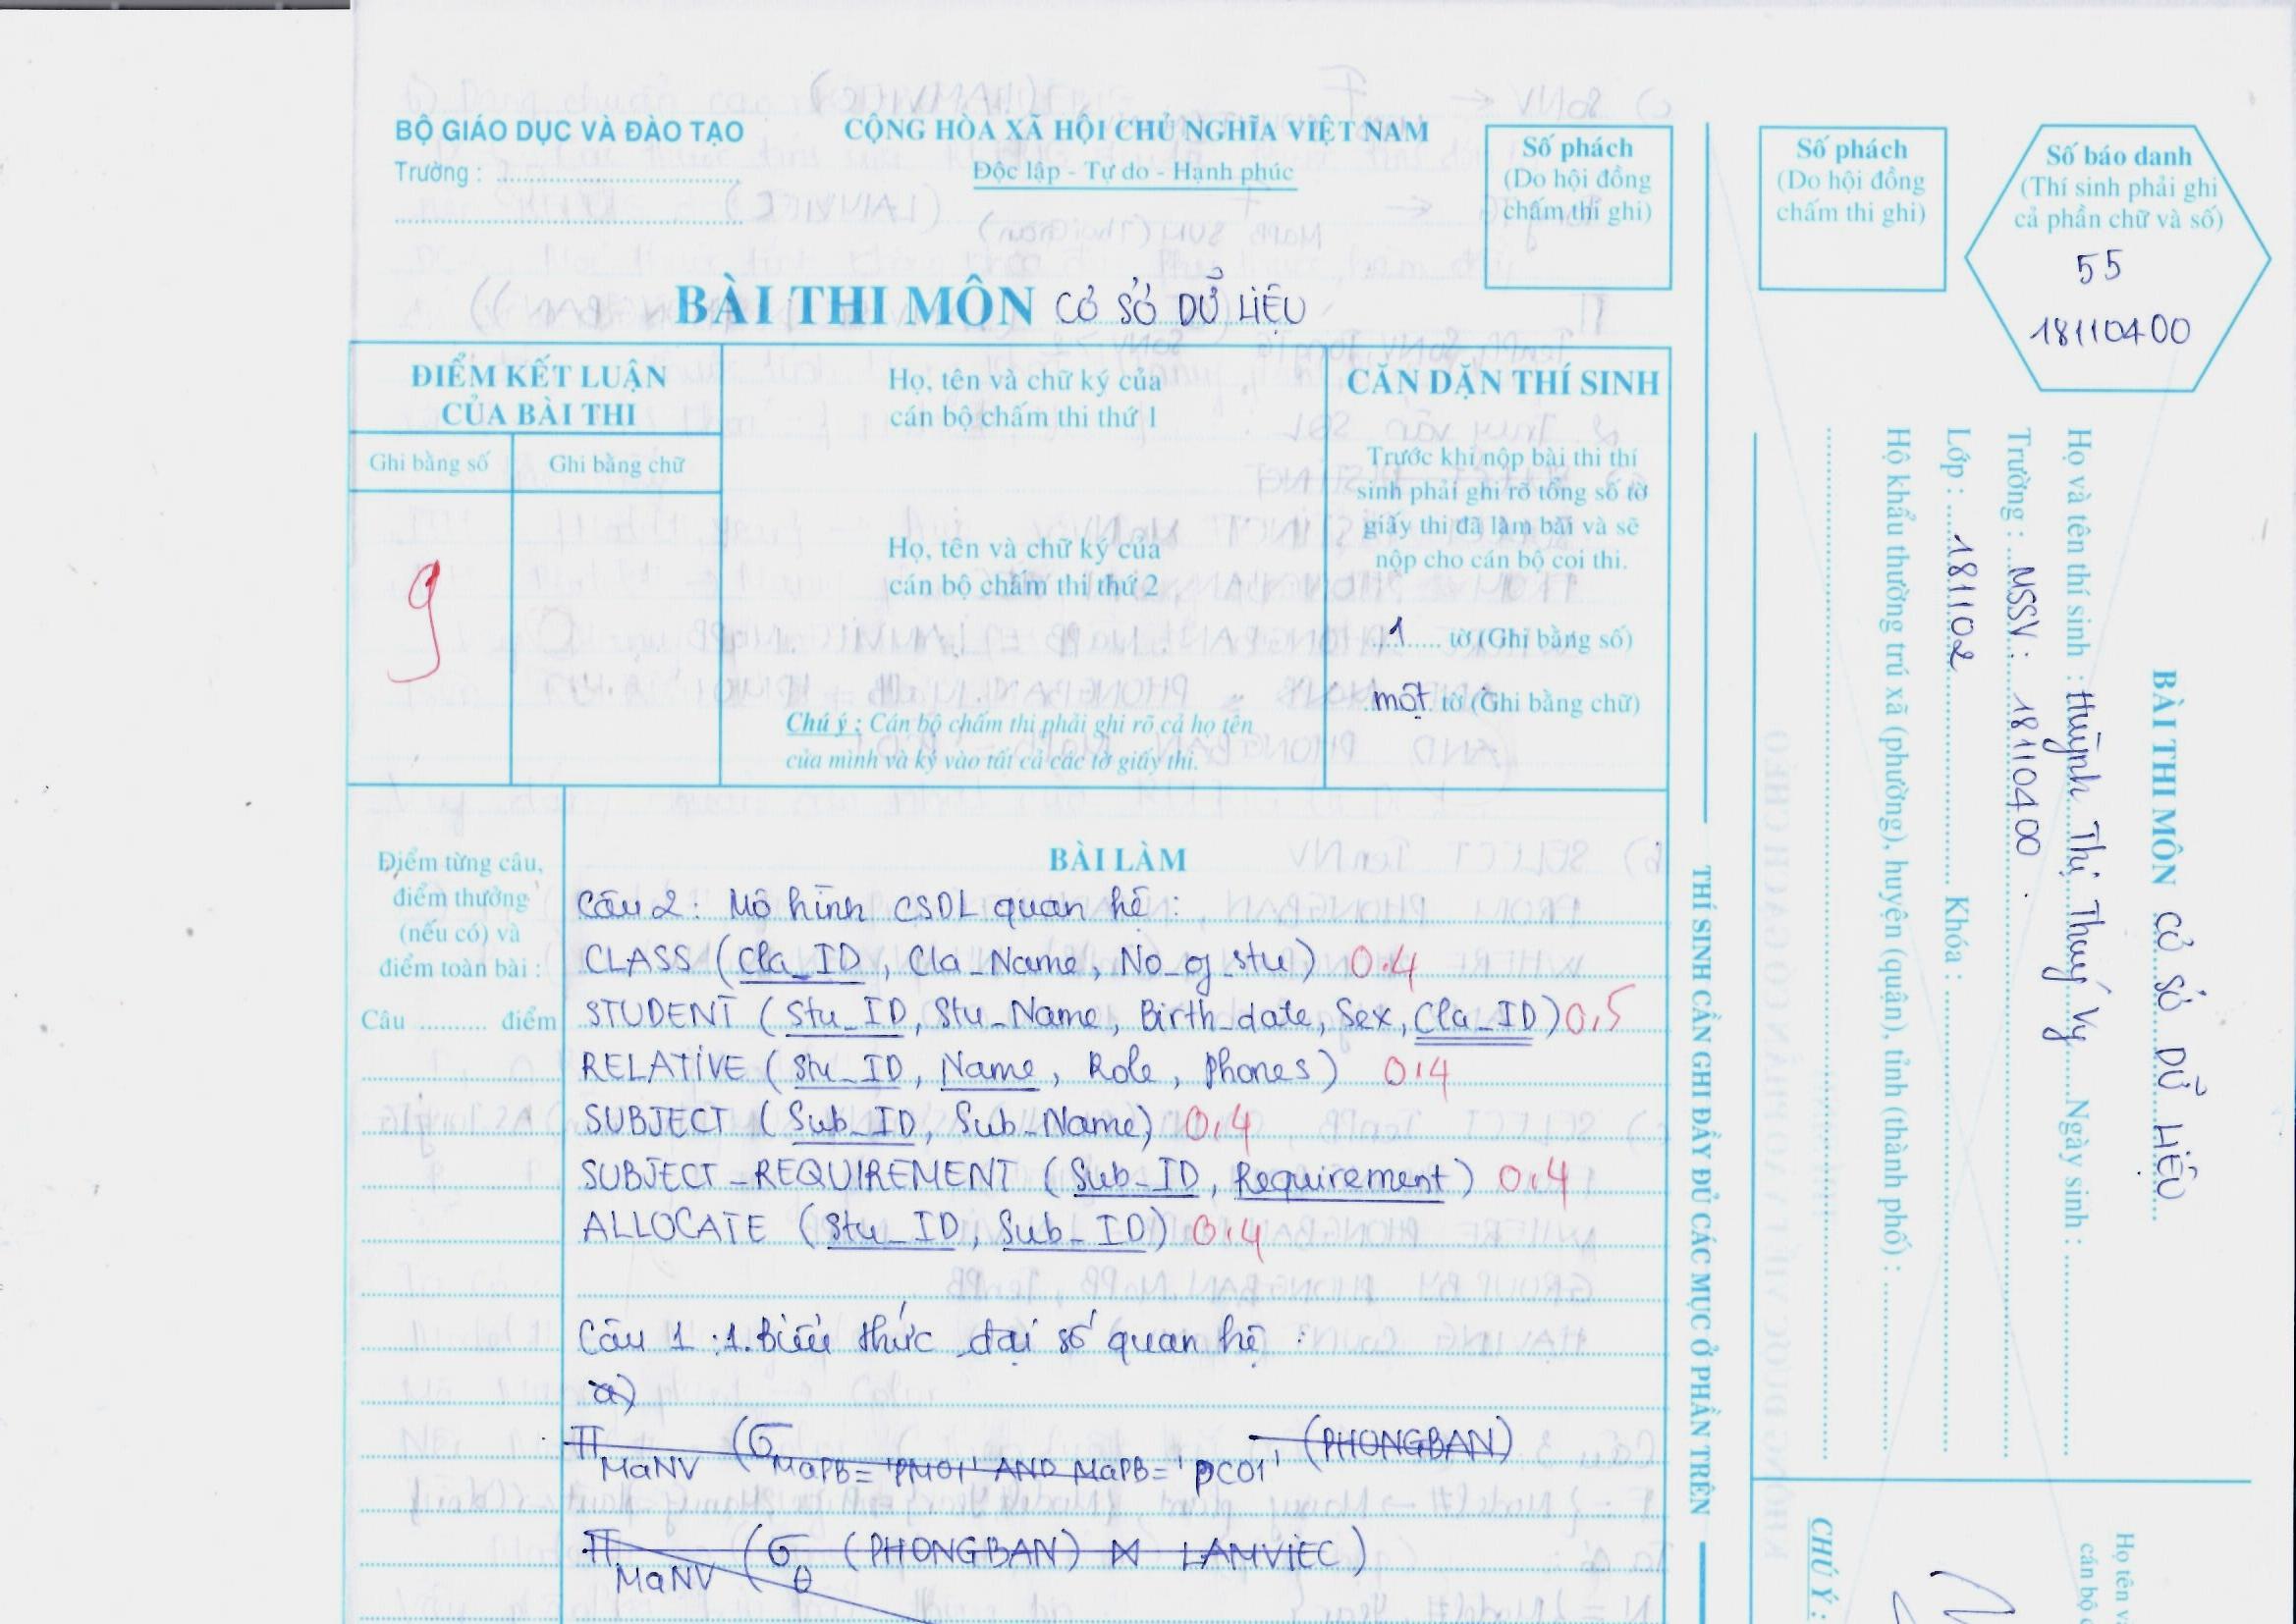 BỘ GIÁO DỤC VÀ ĐÀO TẠO
Trường :
CỘNG HÒA XÃ HỘI CHỦ NGHĨA VIỆT NAM
Độc lập - Tự do - Hạnh phúc
Số phách
(Do hội đồng
chấm thi ghi)
Số phách
(Do hội đồng
chấm thi ghi)
Số báo danh
(Thí sinh phải ghi
cả phần chữ và số)
55
18110400
BÀI THI MÔN CƠ SỞ DỮ LIỆU
ĐIỂM KẾT LUẬN
CỦA BÀI THI
Ghi bằng số
Ghi bằng chữ
9
Họ, tên và chữ ký của
cán bộ chấm thi thứ 1
Họ, tên và chữ ký của
cán bộ chấm thi thứ 2
Chú ý : Cán bộ chấm thi phải ghi rõ cả họ tên
của mình và ký vào tất cả các tờ giấy thi.
CĂN DẶN THÍ SINH
Trước khi nộp bài thi thí
sinh phải ghi rõ tổng số tờ
giấy thi đã làm bài và sẽ
nộp cho cán bộ coi thi.
1 tờ (Ghi bằng số)
một tờ (Ghi bằng chữ)
Điểm từng câu,
điểm thưởng
(nếu có) và
điểm toàn bài :
Câu .......... điểm
BÀI LÀM
Câu 2 : Mô hình CSDL quan hệ :
CLASS (Cla_ID, Cla_Name, No_of_stu) 0.4
STUDENT (Stu_ID, Stu_Name, Birth_date, Sex, Cla_ID) 0,5
RELATIVE (Stu_ID, Name, Role, Phones) 0,4
SUBJECT (Sub_ID, Sub_Name) 0,4
SUBJECT_REQUIREMENT (Sub_ID, Requirement) 0,4
ALLOCATE (Stu_ID, Sub_ID) 0,4
Câu 1 : 1. Biểu thức đại số quan hệ :
a)
π MaNV (σ MaPB = 'PM01' AND MaPB = 'PC01' (PHONGBAN)
π MaNV (σ θ (PHONGBAN) ⋈ LAMVIEC)
THÍ SINH CẦN GHI ĐẦY ĐỦ CÁC MỤC Ở PHẦN TRÊN
BÀI THI MÔN CƠ SỞ DỮ LIỆU
Họ và tên thí sinh : Huỳnh Thị Thuý Vy Ngày sinh :
Trường : MSSV : 18110400
Lớp : 181102 Khóa :
Hộ khẩu thường trú xã (phường), huyện (quận), tỉnh (thành phố) :
Họ tên và
cán bộ c
CHÚ Ý :